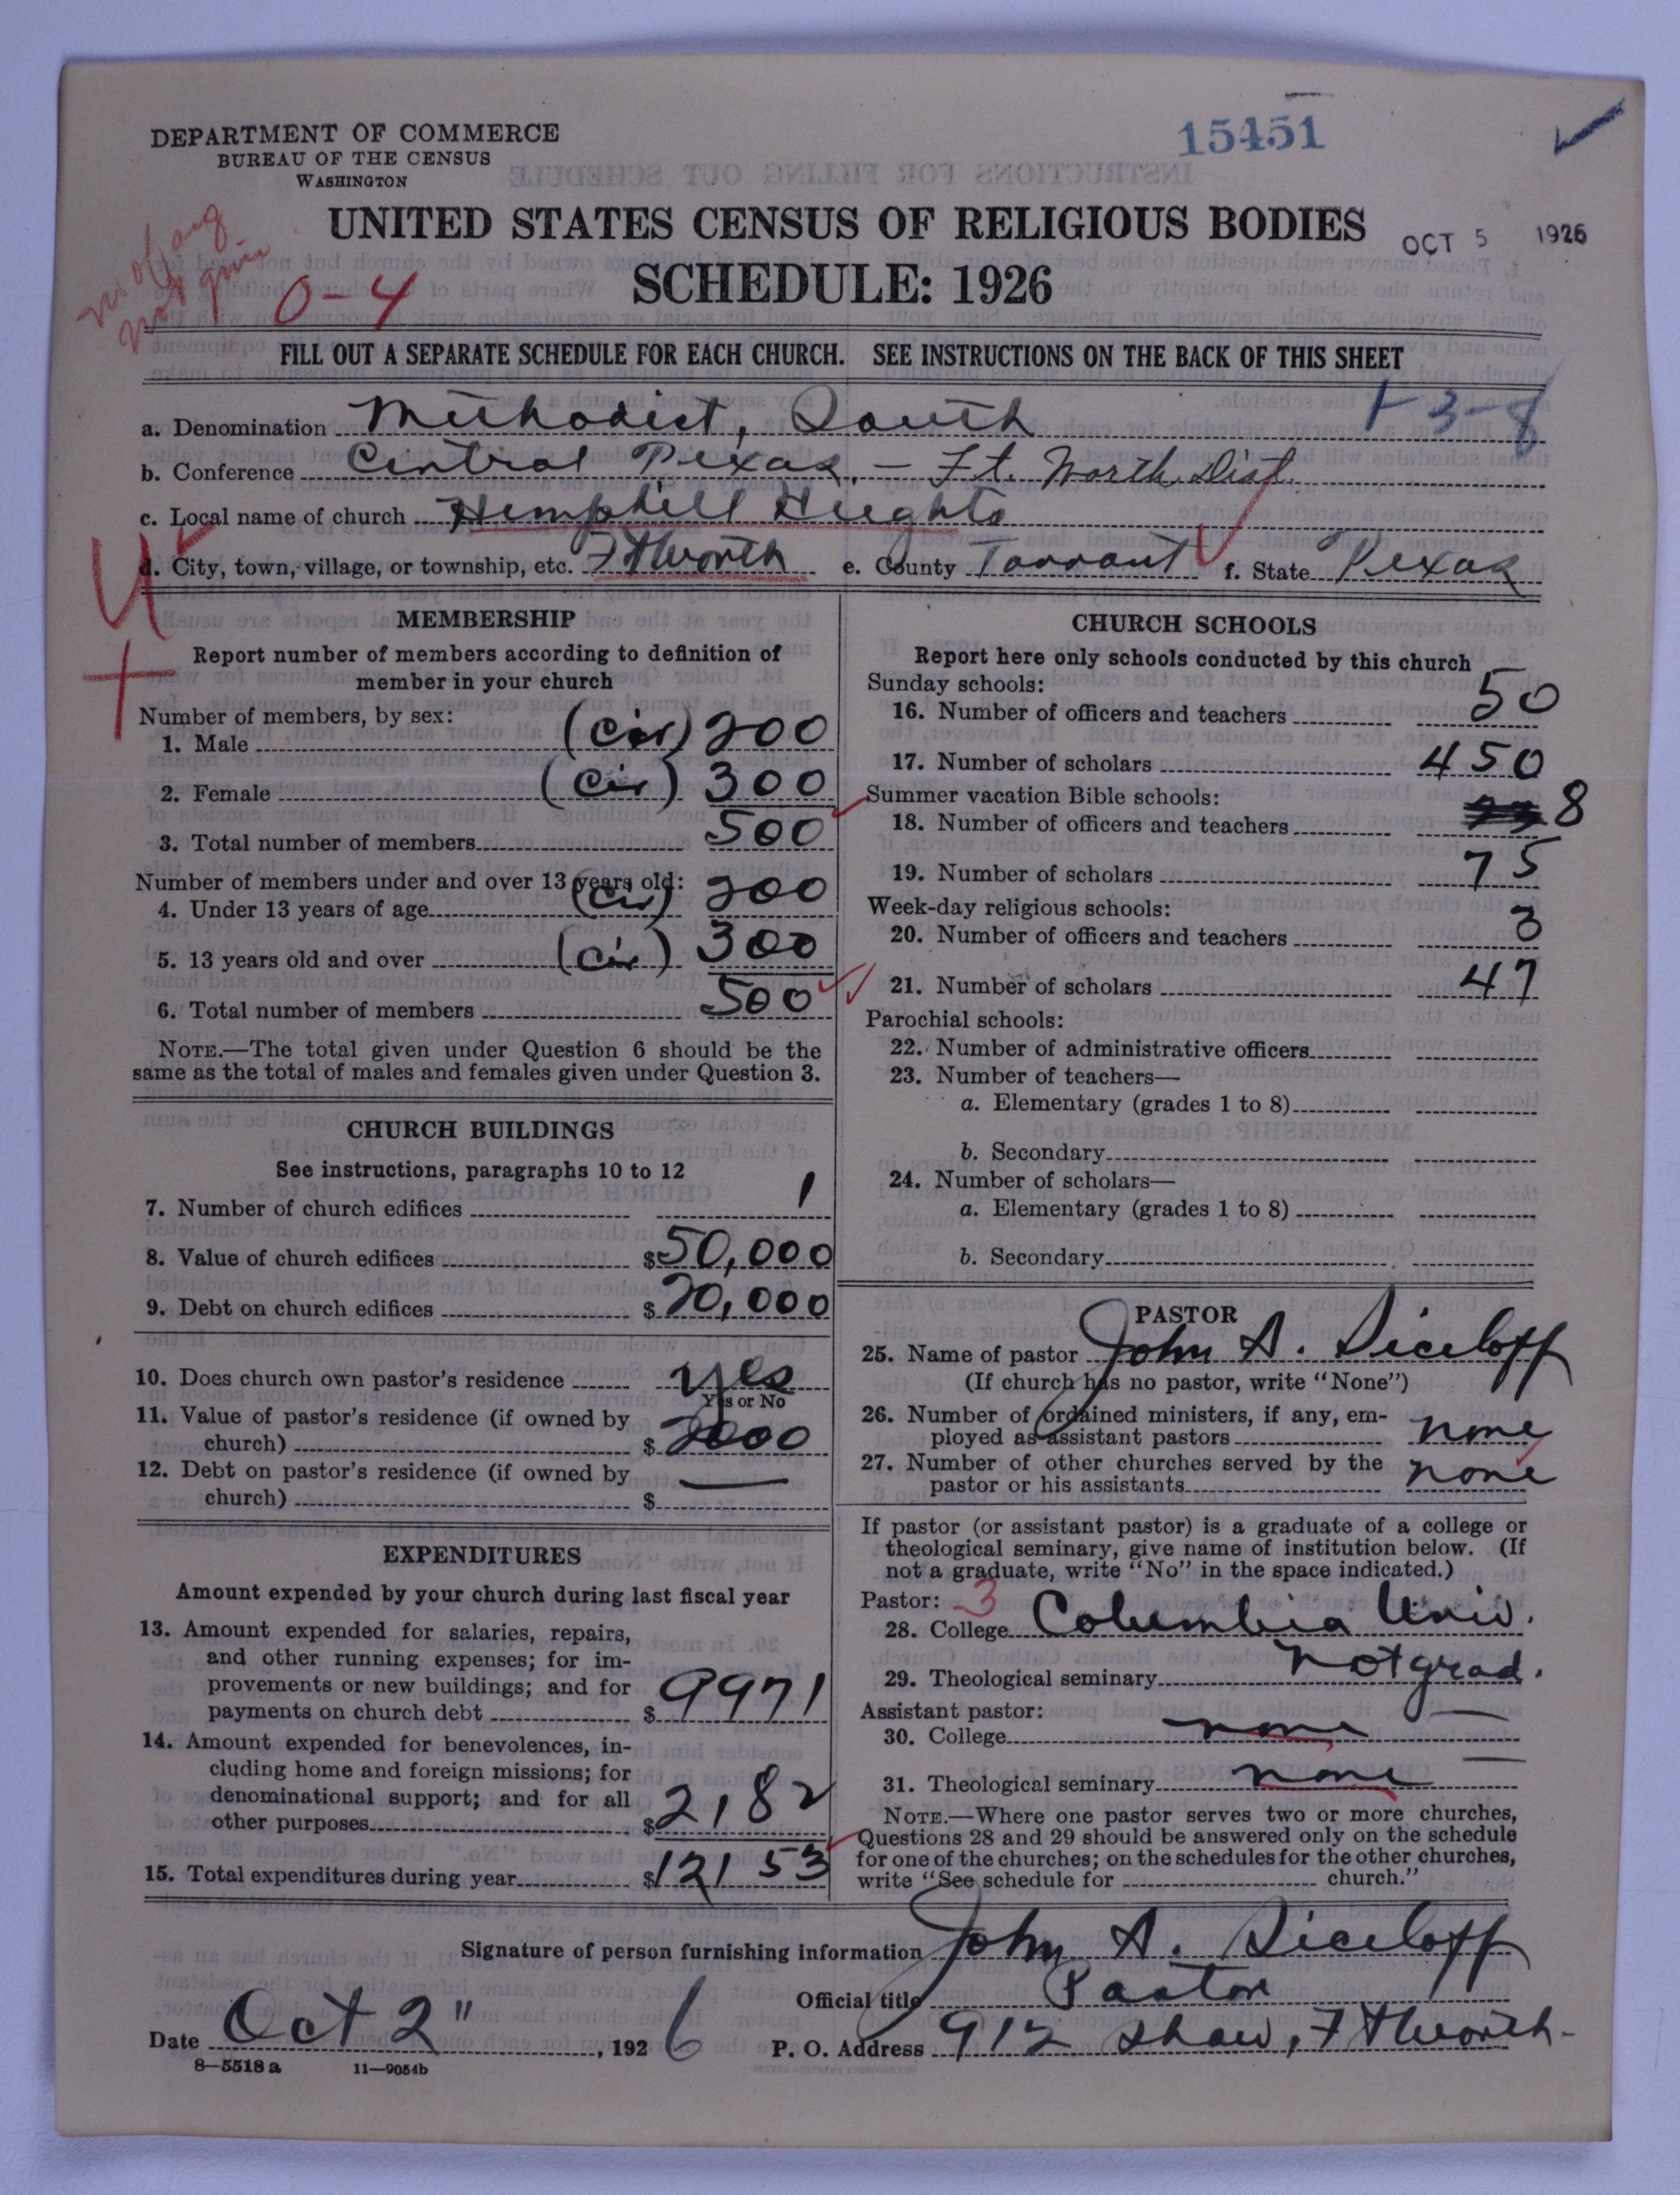 15451
DEPARTMENT OF COMMERCE
BUREAU OF THE CENSUS
WASHINGTON
UNITED STATES CENSUS OF RELIGIOUS BODIES
OCT 5 1926
SCHEDULE: 1926
not given
0-4
FILL OUT A SEPARATE SCHEDULE FOR EACH CHURCH. SEE INSTRUCTIONS ON THE BACK OF THIS SHEET
1-3-8
a. Denomination Methodist, South
b. Conference Central Texas - Ft. Worth Dist.
c. Local name of church Hemphill Heights
d. City, town, village, or township, etc. Ft Worth e. County Tarrant f. State Texas
MEMBERSHIP
Report number of members according to definition of
member in your church
Number of members, by sex:
1. Male (Cir) 200
2. Female (Cir) 300
3. Total number of members 500
Number of members under and over 13 years old:
4. Under 13 years of age (Cir) 200
5. 13 years old and over (Cir) 300
6. Total number of members 500
NOTE.—The total given under Question 6 should be the
same as the total of males and females given under Question 3.
CHURCH BUILDINGS
See instructions, paragraphs 10 to 12
7. Number of church edifices 1
8. Value of church edifices $50,000
9. Debt on church edifices $20,000
10. Does church own pastor's residence yes
Yes or No
11. Value of pastor's residence (if owned by
church) $2000
12. Debt on pastor's residence (if owned by
church) $ —
EXPENDITURES
Amount expended by your church during last fiscal year
13. Amount expended for salaries, repairs,
and other running expenses; for im-
provements or new buildings; and for
payments on church debt $9971
14. Amount expended for benevolences, in-
cluding home and foreign missions; for
denominational support; and for all
other purposes $2,182
15. Total expenditures during year $12153
CHURCH SCHOOLS
Report here only schools conducted by this church
Sunday schools:
16. Number of officers and teachers 50
17. Number of scholars 450
Summer vacation Bible schools:
18. Number of officers and teachers 8
19. Number of scholars 75
Week-day religious schools:
20. Number of officers and teachers 3
21. Number of scholars 47
Parochial schools:
22. Number of administrative officers
23. Number of teachers—
a. Elementary (grades 1 to 8)
b. Secondary
24. Number of scholars—
a. Elementary (grades 1 to 8)
b. Secondary
PASTOR
25. Name of pastor John A. Siceloff
(If church has no pastor, write "None")
26. Number of ordained ministers, if any, em-
ployed as assistant pastors none
27. Number of other churches served by the
pastor or his assistants none
If pastor (or assistant pastor) is a graduate of a college or
theological seminary, give name of institution below. (If
not a graduate, write "No" in the space indicated.)
Pastor: 3
28. College Columbia Univ.
29. Theological seminary Not grad.
Assistant pastor:
30. College none
31. Theological seminary none
NOTE.—Where one pastor serves two or more churches,
Questions 28 and 29 should be answered only on the schedule
for one of the churches; on the schedules for the other churches,
write "See schedule for church."
Signature of person furnishing information John A. Siceloff
Official title Pastor
Date Oct 2", 1926 P. O. Address 912 Shaw, Ft Worth-
8—5518a 11—9054b